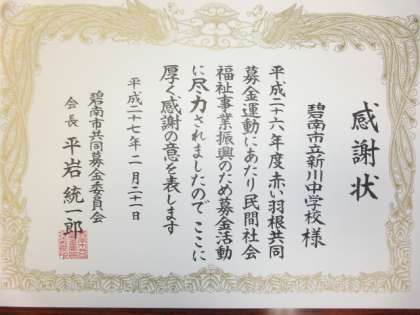 感謝状
碧南市立新川中学校様
平成二十六年度赤い羽根共同
募金運動にあたり民間社会
福祉事業振興のため募金活動
に尽力されましたのでここに
厚く感謝の意を表します
平成二十七年二月二十一日
碧南市共同募金委員会
会長 平岩統一郎